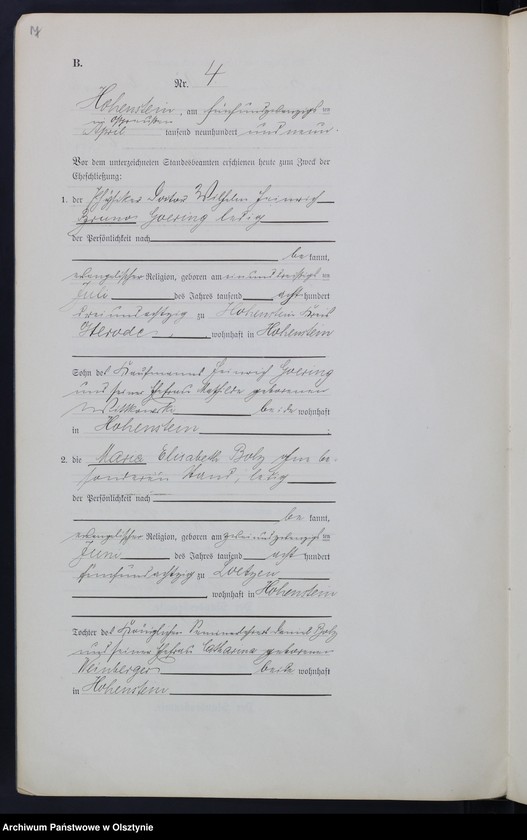 B.
Nr. 4
Hohenstein, am fünfundzwanzigsten
in Ostpreußen
April tausend neunhundert und neun.
Vor dem unterzeichneten Standesbeamten erschienen heute zum Zweck der
Eheschließung:
1. der Physiker Doctor Wilhelm Heinrich
Bruno Goering ledig
der Persönlichkeit nach
bekannt,
evangelischer Religion, geboren am einunddreißigsten
Juli des Jahres tausend acht hundert
dreiundachtzig zu Hohenstein Kreis
Osterode, wohnhaft in Hohenstein
Sohn des Kaufmanns Heinrich Goering
und seiner Ehefrau Mathilde geborenen
beide wohnhaft
in Hohenstein;
2. die Marie Elisabeth Bolz ohne be-
sonderen Stand, ledig
der Persönlichkeit nach
bekannt,
evangelischer Religion, geboren am zweiundzwanzigsten
Juni des Jahres tausend acht hundert
fünfundachtzig zu Loetzen
, wohnhaft in Hohenstein
Tochter des Königlichen Daniel Bolz
und seiner Ehefrau Catharina geborenen
Weinberger beide wohnhaft
in Hohenstein
Archiwum Państwowe w Olsztynie